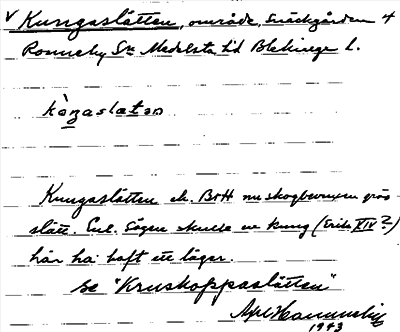 v Kungaslätten, område, Snäckgården 4
Ronneby Sn Medelsta hd Blekinge l.
kòṉgaslætən
Kungaslätten el. B++H nu skogbevuxen gräs-
slätt. Enl. Sägen skulle en kung (Erik XIV?)
här ha haft ett läger.
se "Kruskoppaslätten"
Axel
1943